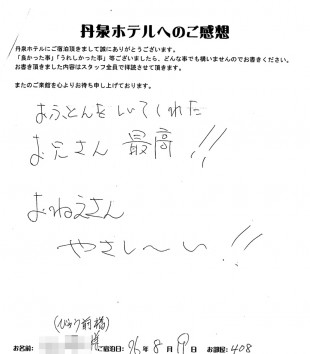 丹泉ホテルへのご感想
丹泉ホテルにご宿泊頂きまして誠にありがとうございます。
「良かった事」「うれしかった事」等ございましたら、どんな事でも構いませんのでお書きください。
お書き頂きました内容はスタッフ全員で拝読させて頂きます。
またのご来館を心よりお待ち申し上げております。
おふとんをしいてくれた
お兄さん 最高!!
おねえさん
やさし〜い!!
お名前: 様 ご宿泊日: 26年 8月 19日 お部屋: 408